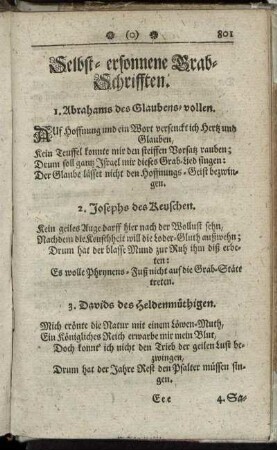 (o) 801
Selbst- ersonnene Grab-
Schrifften.
1. Abrahams des Glaubens-vollen.
Auf Hoffnung und ein Wort versenckt ich Hertz und
Glauben,
Kein Teuffel konnte mir den steiffen Vorsatz rauben;
Drum soll gantz Israel mir dieses Grab-Lied singen:
Der Glaube lässet nicht den Hoffnungs-Geist bezwin-
gen.
2. Josephs des Keuschen.
Kein geiles Auge darff hier nach der Wollust sehn,
Nachdem die Keuschheit will die Loder-Gluth außwehn;
Drum hat der blasse Mund zur Ruh ihm diß erbe-
ten:
Es wolle Phrynens-Fuß nicht auf die Grab-Stätt
treten.
3. Davids des Heldenmüthigen.
Mich crönte die Natur mit einem Löwen-Muth,
Ein Königliches Reich erwarbe mir mein Blut,
Doch konnt ich nicht den Trieb der geilen Lust be-
zwingen,
Drum hat der Jahre Rest den Psalter müssen sin-
gen.
Eee 4. Sa-